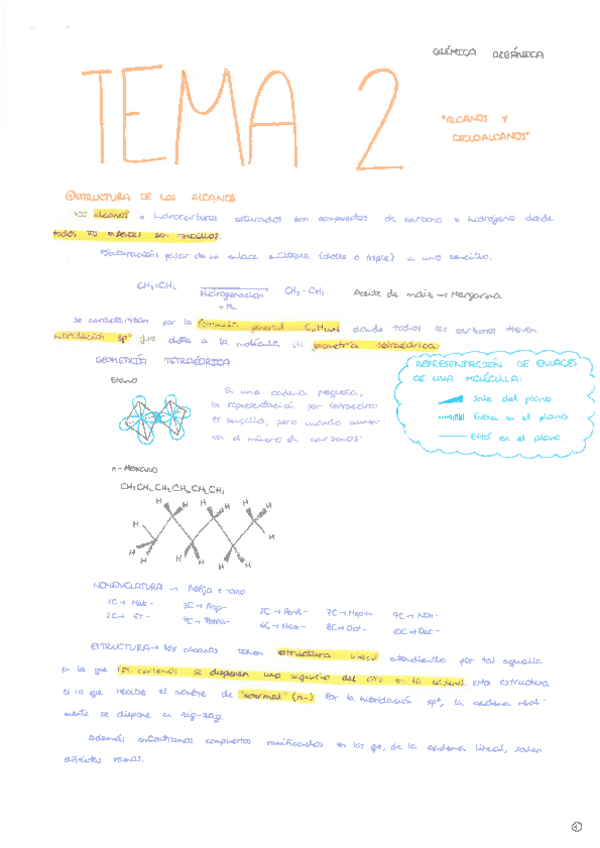 QUÍMICA ORGÁNICA
TEMA 2
"ALCANOS Y
CICLOALCANOS"
① ESTRUCTURA DE LOS ALCANOS
Los alcanos o hidrocarburos saturados son compuestos de carbono e hidrógeno donde
todos los enlaces son sencillos.
Saturación: pasar de un enlace múltiple (doble o triple) a uno sencillo.
CH₂=CH₂ Hidrogenación + H₂ CH₃-CH₃ Aceite de maíz → Margarina
Se caracterizan por la fórmula general CnH2n+2 donde todos los carbonos tienen
hibridación sp³ que dota a la molécula de geometría tetraédrica.
GEOMETRÍA TETRAÉDRICA
REPRESENTACIÓN DE ENLACES
DE UNA MOLÉCULA:
Sale del plano
Entra en el plano
Está en el plano.
Etano
En una cadena pequeña,
la representación por tetraedros
es sencilla, pero cuando aumen-
ta el número de carbonos
n-Hexano
CH₃CH₂CH₂CH₂CH₂CH₃
H H H H H
H H
H H H H H
NOMENCLATURA → Prefijo + -ano
1C → Met- 3C → Prop- 5C → Pent- 7C → Hept- 9C → Non-
2C → Et- 4C → Tetra- 6C → Hexa- 8C → Oct- 10C → Dec-
ESTRUCTURA → Los alcanos tienen estructura lineal entendiendo por tal aquella
en la que los carbonos se disponen uno seguido del otro en la cadena. Esta estructura
es la que recibe el nombre de "normal" (n-). Por la hibridación sp³, la cadena real-
mente se dispone en zig-zag.
Además encontramos compuestos ramificados en los que, de la cadena lineal, salen
distintas ramas.
1